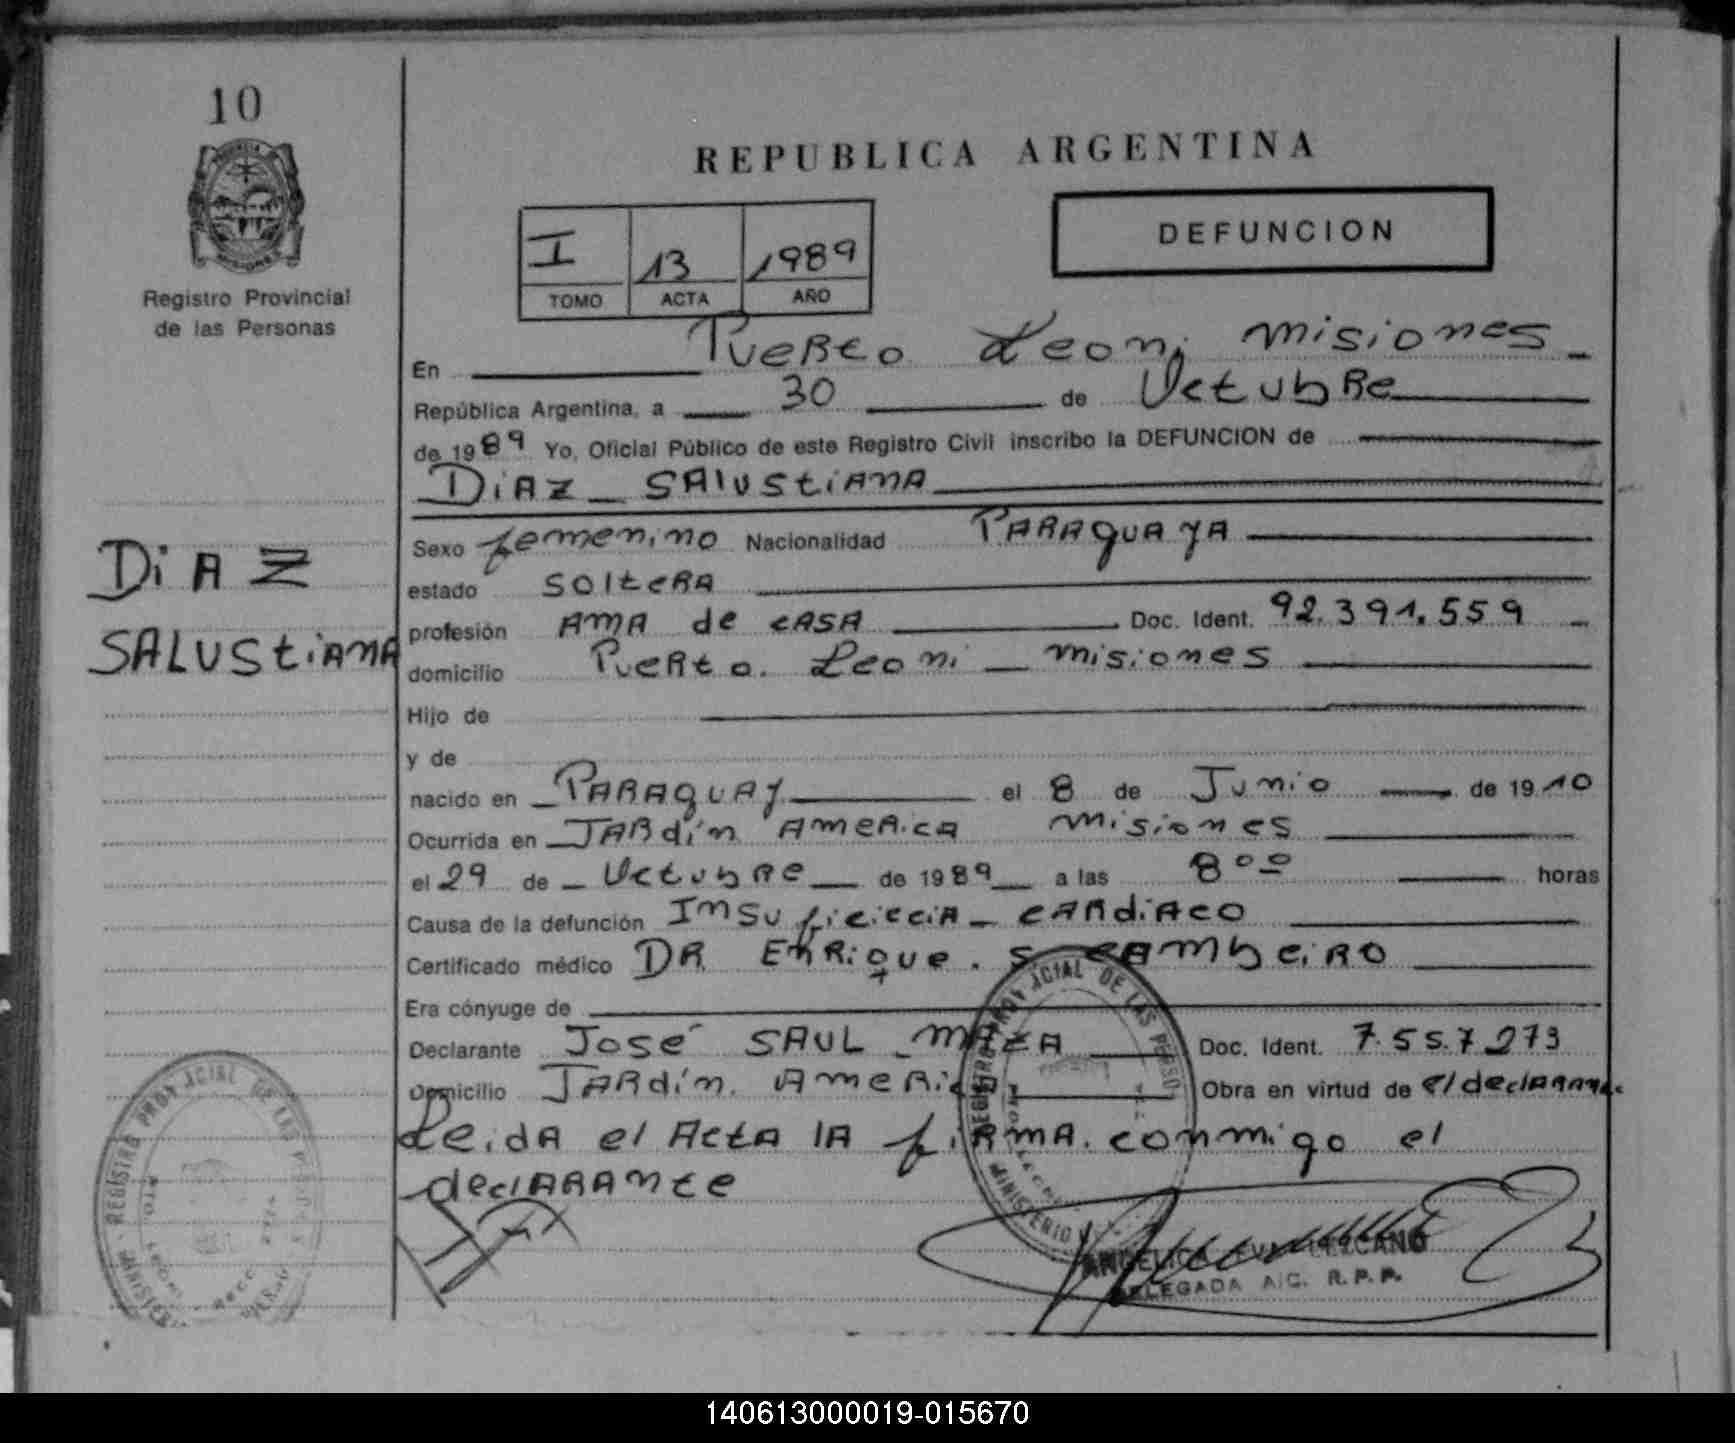 10
PROVINCIA
MISIONES
Registro Provincial
de las Personas
DiAZ
SALUStiANA
REPUBLICA ARGENTINA
I 13 1989
TOMO ACTA AÑO
DEFUNCION
En PueRto Leoni misiones
República Argentina, a 30 de OctubRe
de 1989 Yo, Oficial Público de este Registro Civil inscribo la DEFUNCION de
DiAZ SAlUStiANA
Sexo femenino Nacionalidad PARAguAyA
estado SolteRA
profesión AMA de cASA Doc. Ident. 92.391.559
domicilio PueRto. Leoni misiones
Hijo de
y de
nacido en PARAguAy el 8 de Junio de 1910
Ocurrida en JARdín AmeRica misiones
el 29 de OctubRe de 1989 a las 8 00 horas
Causa de la defunción Imsuficiccia cARdiAco
Certificado médico DR EnRique. S cAmbeiRo
Era cónyuge de
Declarante José SAUL MAZA Doc. Ident. 7.557.273
Domicilio JARdín. AmeRica Obra en virtud de el declarante
Leida el ActA lA fiRMA. conmigo el
declARAnte
REGISTRO PROVINCIAL DE LAS PERSONAS
MINISTERIO
ANGELICA EVA LEZCANO
DELEGADA A/C. R.P.P.
140613000019-015670